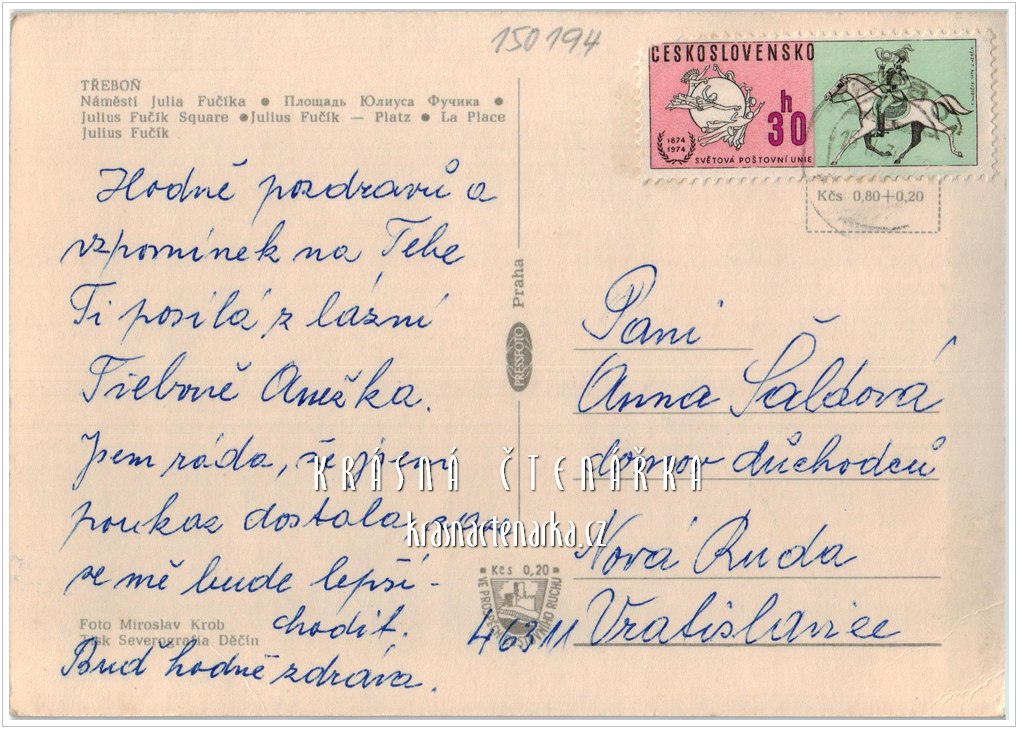 150194
TŘEBOŇ
Náměstí Julia Fučíka ● Площадь Юлиуса Фучика ●
Julius Fučík Square ● Julius Fučík — Platz ● La Place
Julius Fučík
ČESKOSLOVENSKO
h
30
1874
1974
SVĚTOVÁ POŠTOVNÍ UNIE
Kčs 0,80+0,20
Hodně pozdravů a
vzpomínek na Tebe
Ti posílá z lázní
Třeboně Anežka.
Jsem ráda, že jsem
poukaz dostala, zase
se mě bude lepší-
chodit.
Buď hodně zdráva.
Foto Miroslav Krob
Tisk Severografia Děčín
PRESSFOTO Praha
Paní
Anna Šaldová
domov důchodců
Nová Ruda
46311 Vratislavice
Kčs 0,20
VE PROSPĚCH CESTOVNÍHO RUCHU
KRÁSNÁ ČTENÁŘKA
krasnactenarka.cz